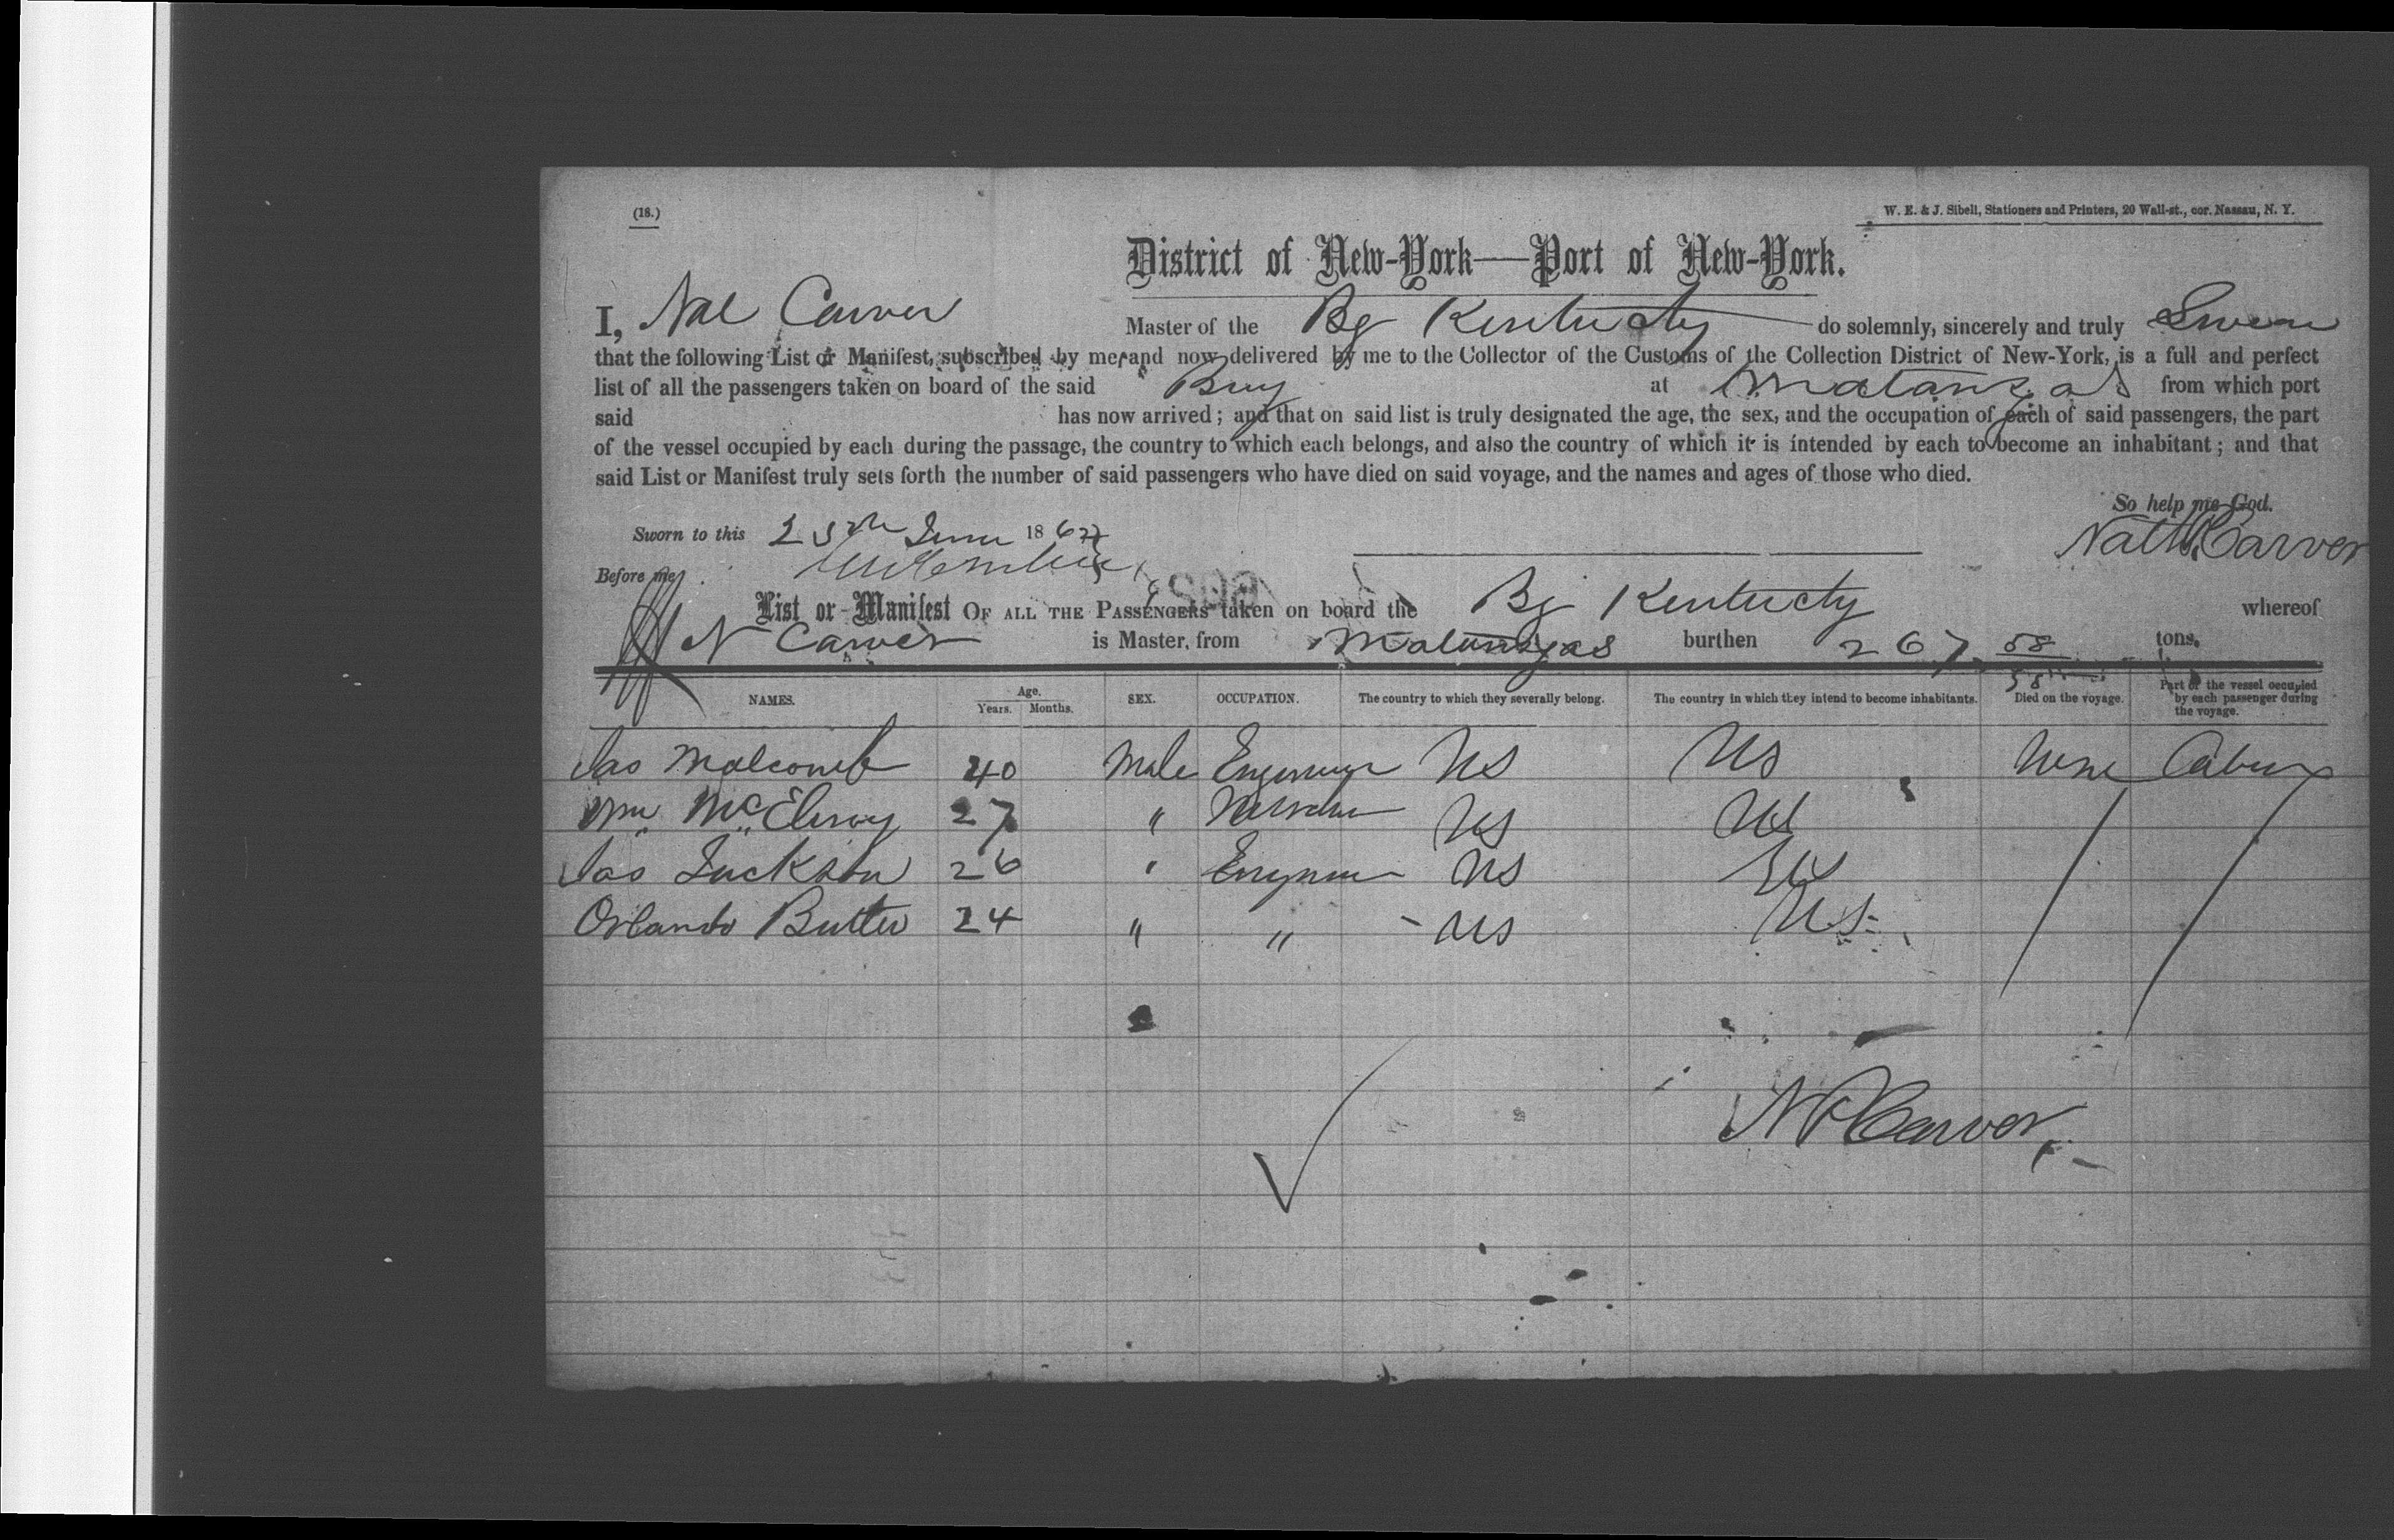 (18.)
W. E. & J. Sibell, Stationers and Printers, 20 Wall-st., cor. Nassau, N. Y.
District of New-York—Port of New-York.
I, Nat Carver Master of the Bg Kentucky do solemnly, sincerely and truly Swear
that the following List or Manifest, subscribed by me, and now delivered by me to the Collector of the Customs of the Collection District of New-York, is a full and perfect
list of all the passengers taken on board of the said Brig at Matanzas from which port
said has now arrived; and that on said list is truly designated the age, the sex, and the occupation of each of said passengers, the part
of the vessel occupied by each during the passage, the country to which each belongs, and also the country of which it is intended by each to become an inhabitant; and that
said List or Manifest truly sets forth the number of said passengers who have died on said voyage, and the names and ages of those who died.
So help me God.
Sworn to this 25th June 186
Nath Carver
Before me,
List or Manifest OF ALL THE PASSENGERS taken on board the Bg Kentucky whereof
N Carver is Master, from Matanzas burthen 267 tons.
NAMES. Age. Years. Months. SEX. OCCUPATION. The country to which they severally belong. The country in which they intend to become inhabitants. Died on the voyage. Part of the vessel occupied by each passenger during the voyage.
Jas Malcomb 40 Male Engineer US US None Cabin
Wm McElroy 27 " US US
Jas Jackson 26 " Engineer US US
Orlando Butler 24 " " US US
N Carver